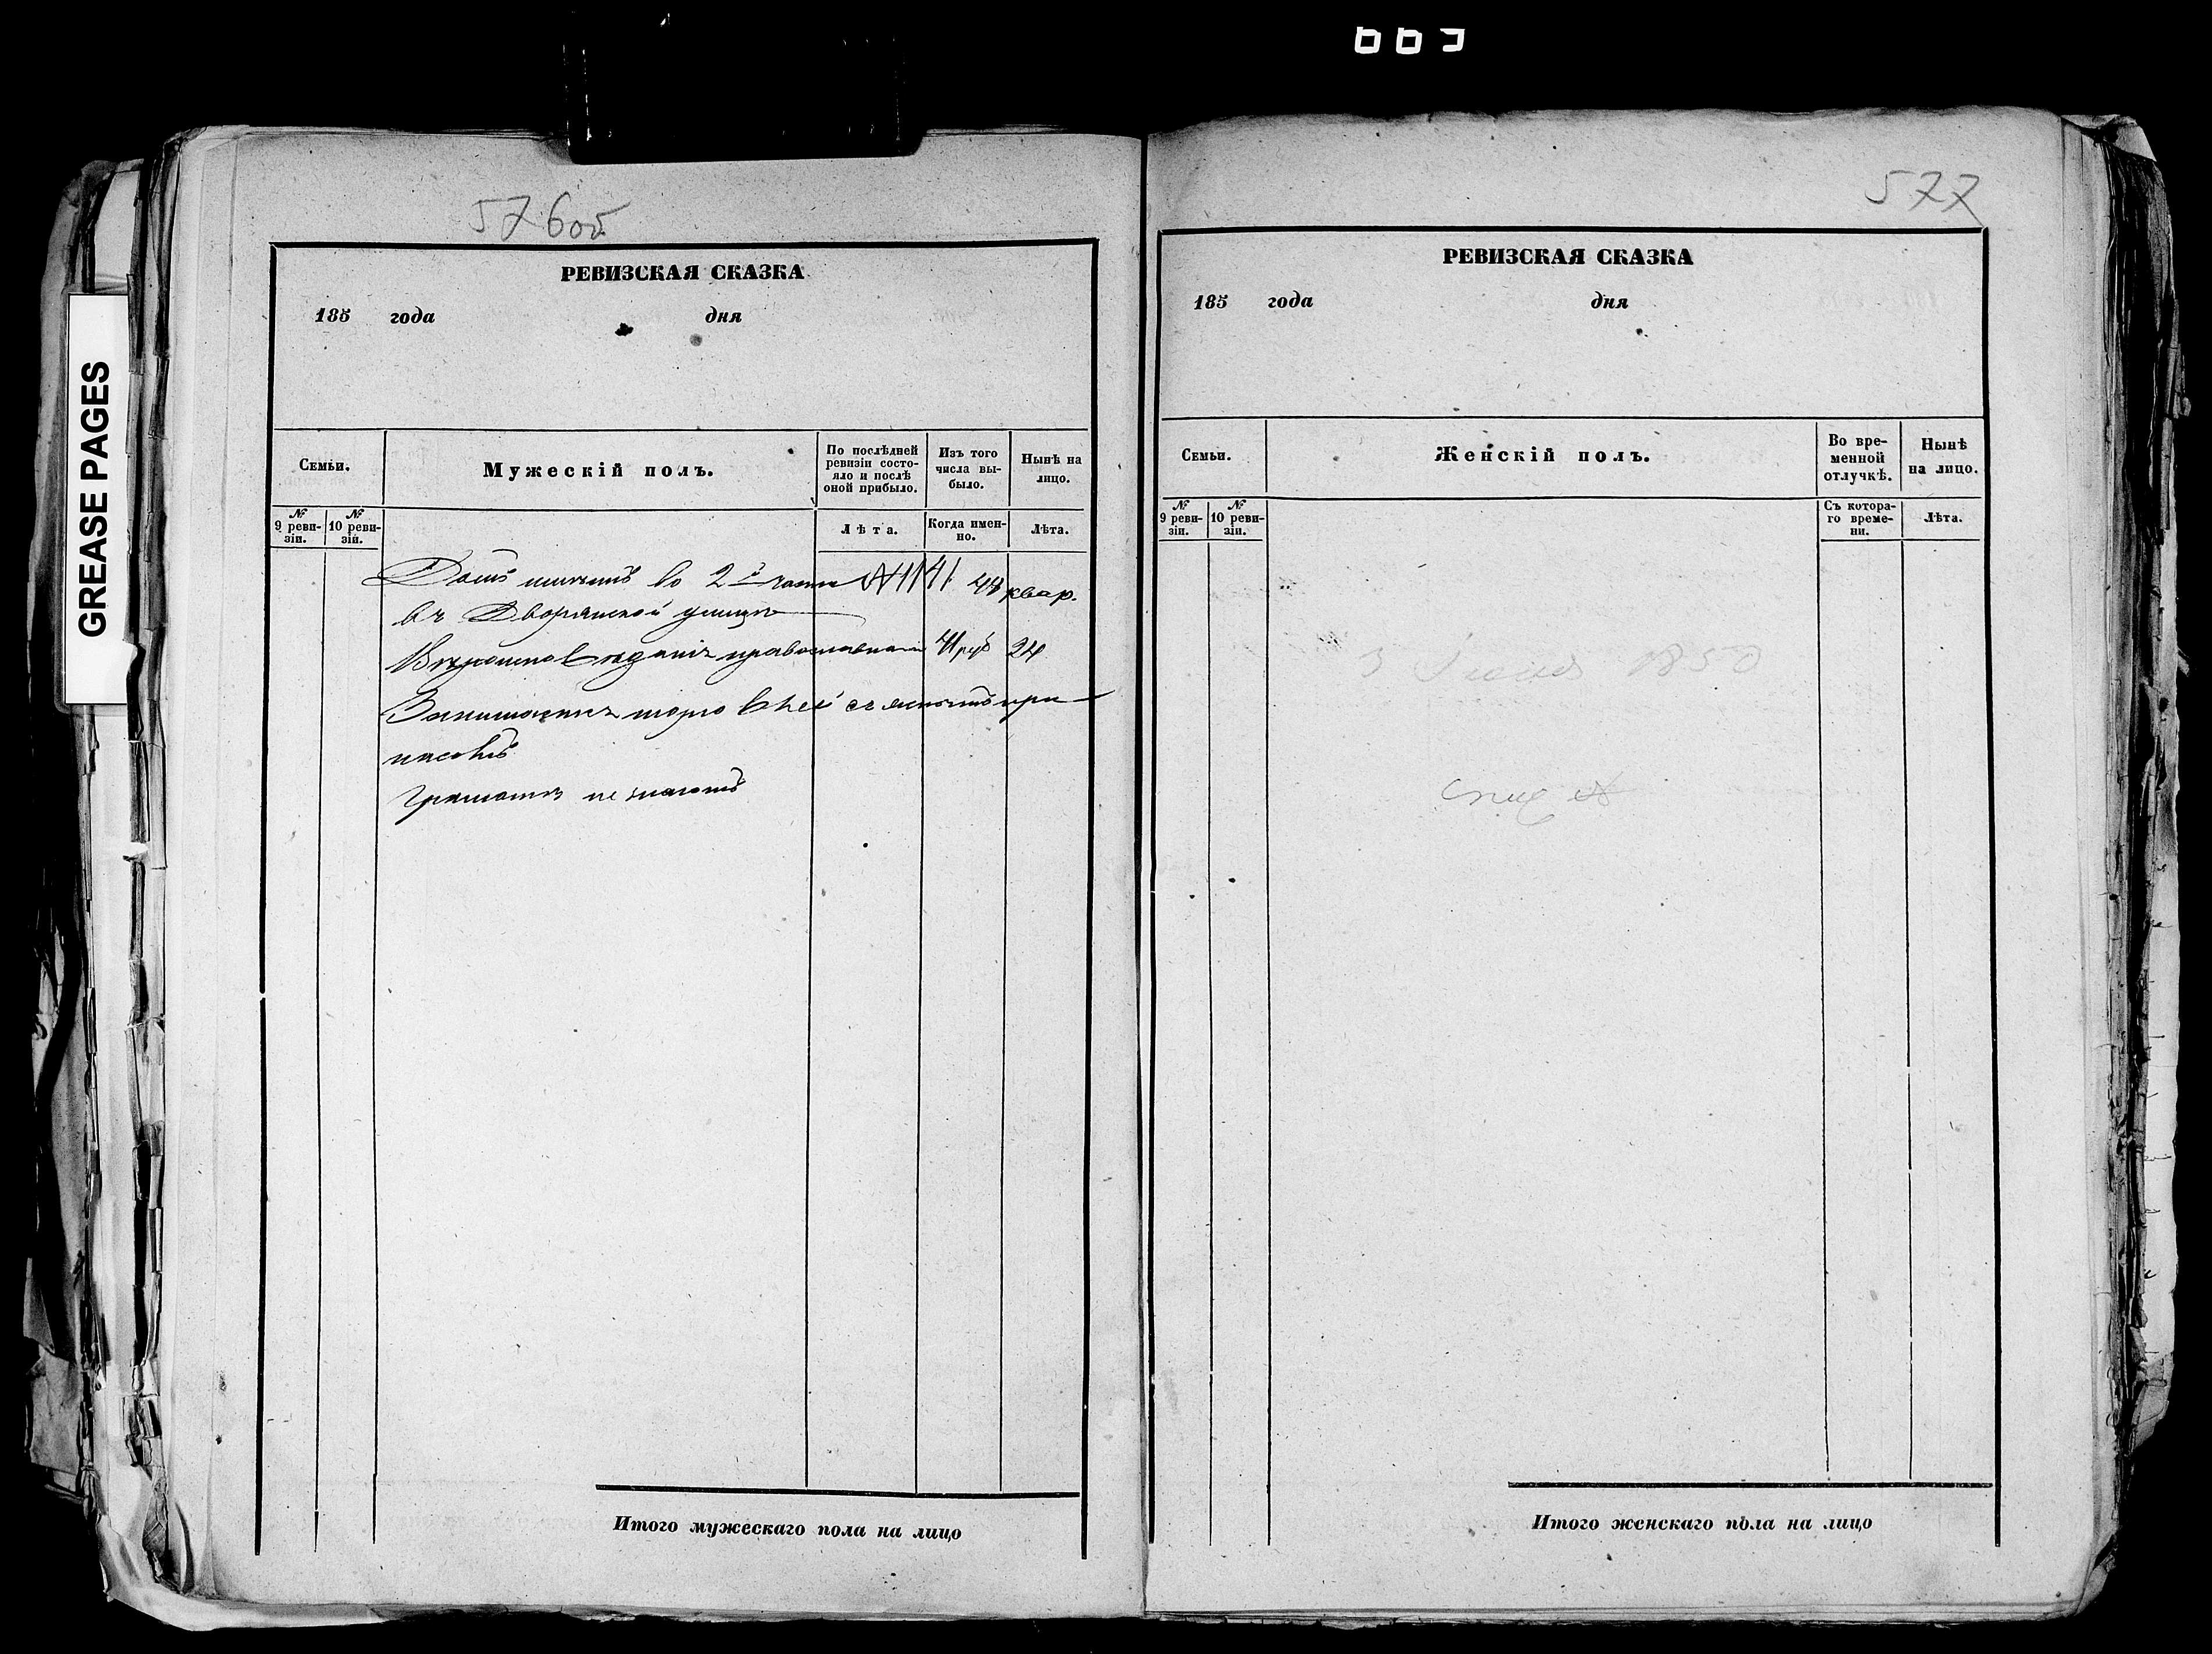 GREASE PAGES
576 об
РЕВИЗСКАЯ СКАЗКА
185 года дня
Семьи.
Мужескій полъ.
По послѣдней ревизіи состо-
яло и послѣ
оной прибыло.
Изъ того
числа вы-
было.
Нынѣ на
лицо.
№
9 реви-
зіи.
№
10 реви-
зій.
Лѣта.
Когда имен-
но.
Лѣта.
Домъ имѣютъ во 2й части №1141 квар.
въ Дворянской улицѣ
Вѣроисповѣданія православнаго руб 24
Занимаются съ
пасовъ
Грамотѣ не знаютъ
Итого мужескаго пола на лицо
577
РЕВИЗСКАЯ СКАЗКА
185 года дня
Семьи.
Женскій полъ.
Во вре-
менной
отлучкѣ.
Нынѣ
на лицо.
№
9 реви-
зіи.
№
10 реви-
зіи.
Съ котора-
го време-
ни.
Лѣта.
3 1850
Итого женскаго пола на лицо